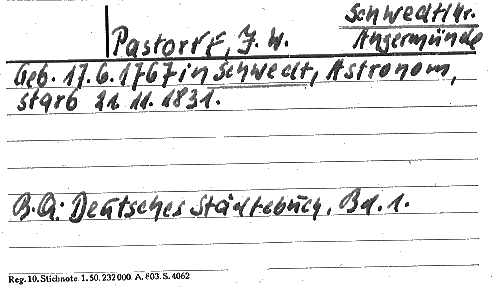 Schwedt/Kr.
Angermünde
Pastorff, J. W.
Geb. 17.6.1767 in Schwedt, Astronom,
starb 21.11.1831.
B.Q.: Deutsches Städtebuch, Bd. 1.
Reg. 10. Stichnote. 1. 50. 232000. A. 803. S. 4062